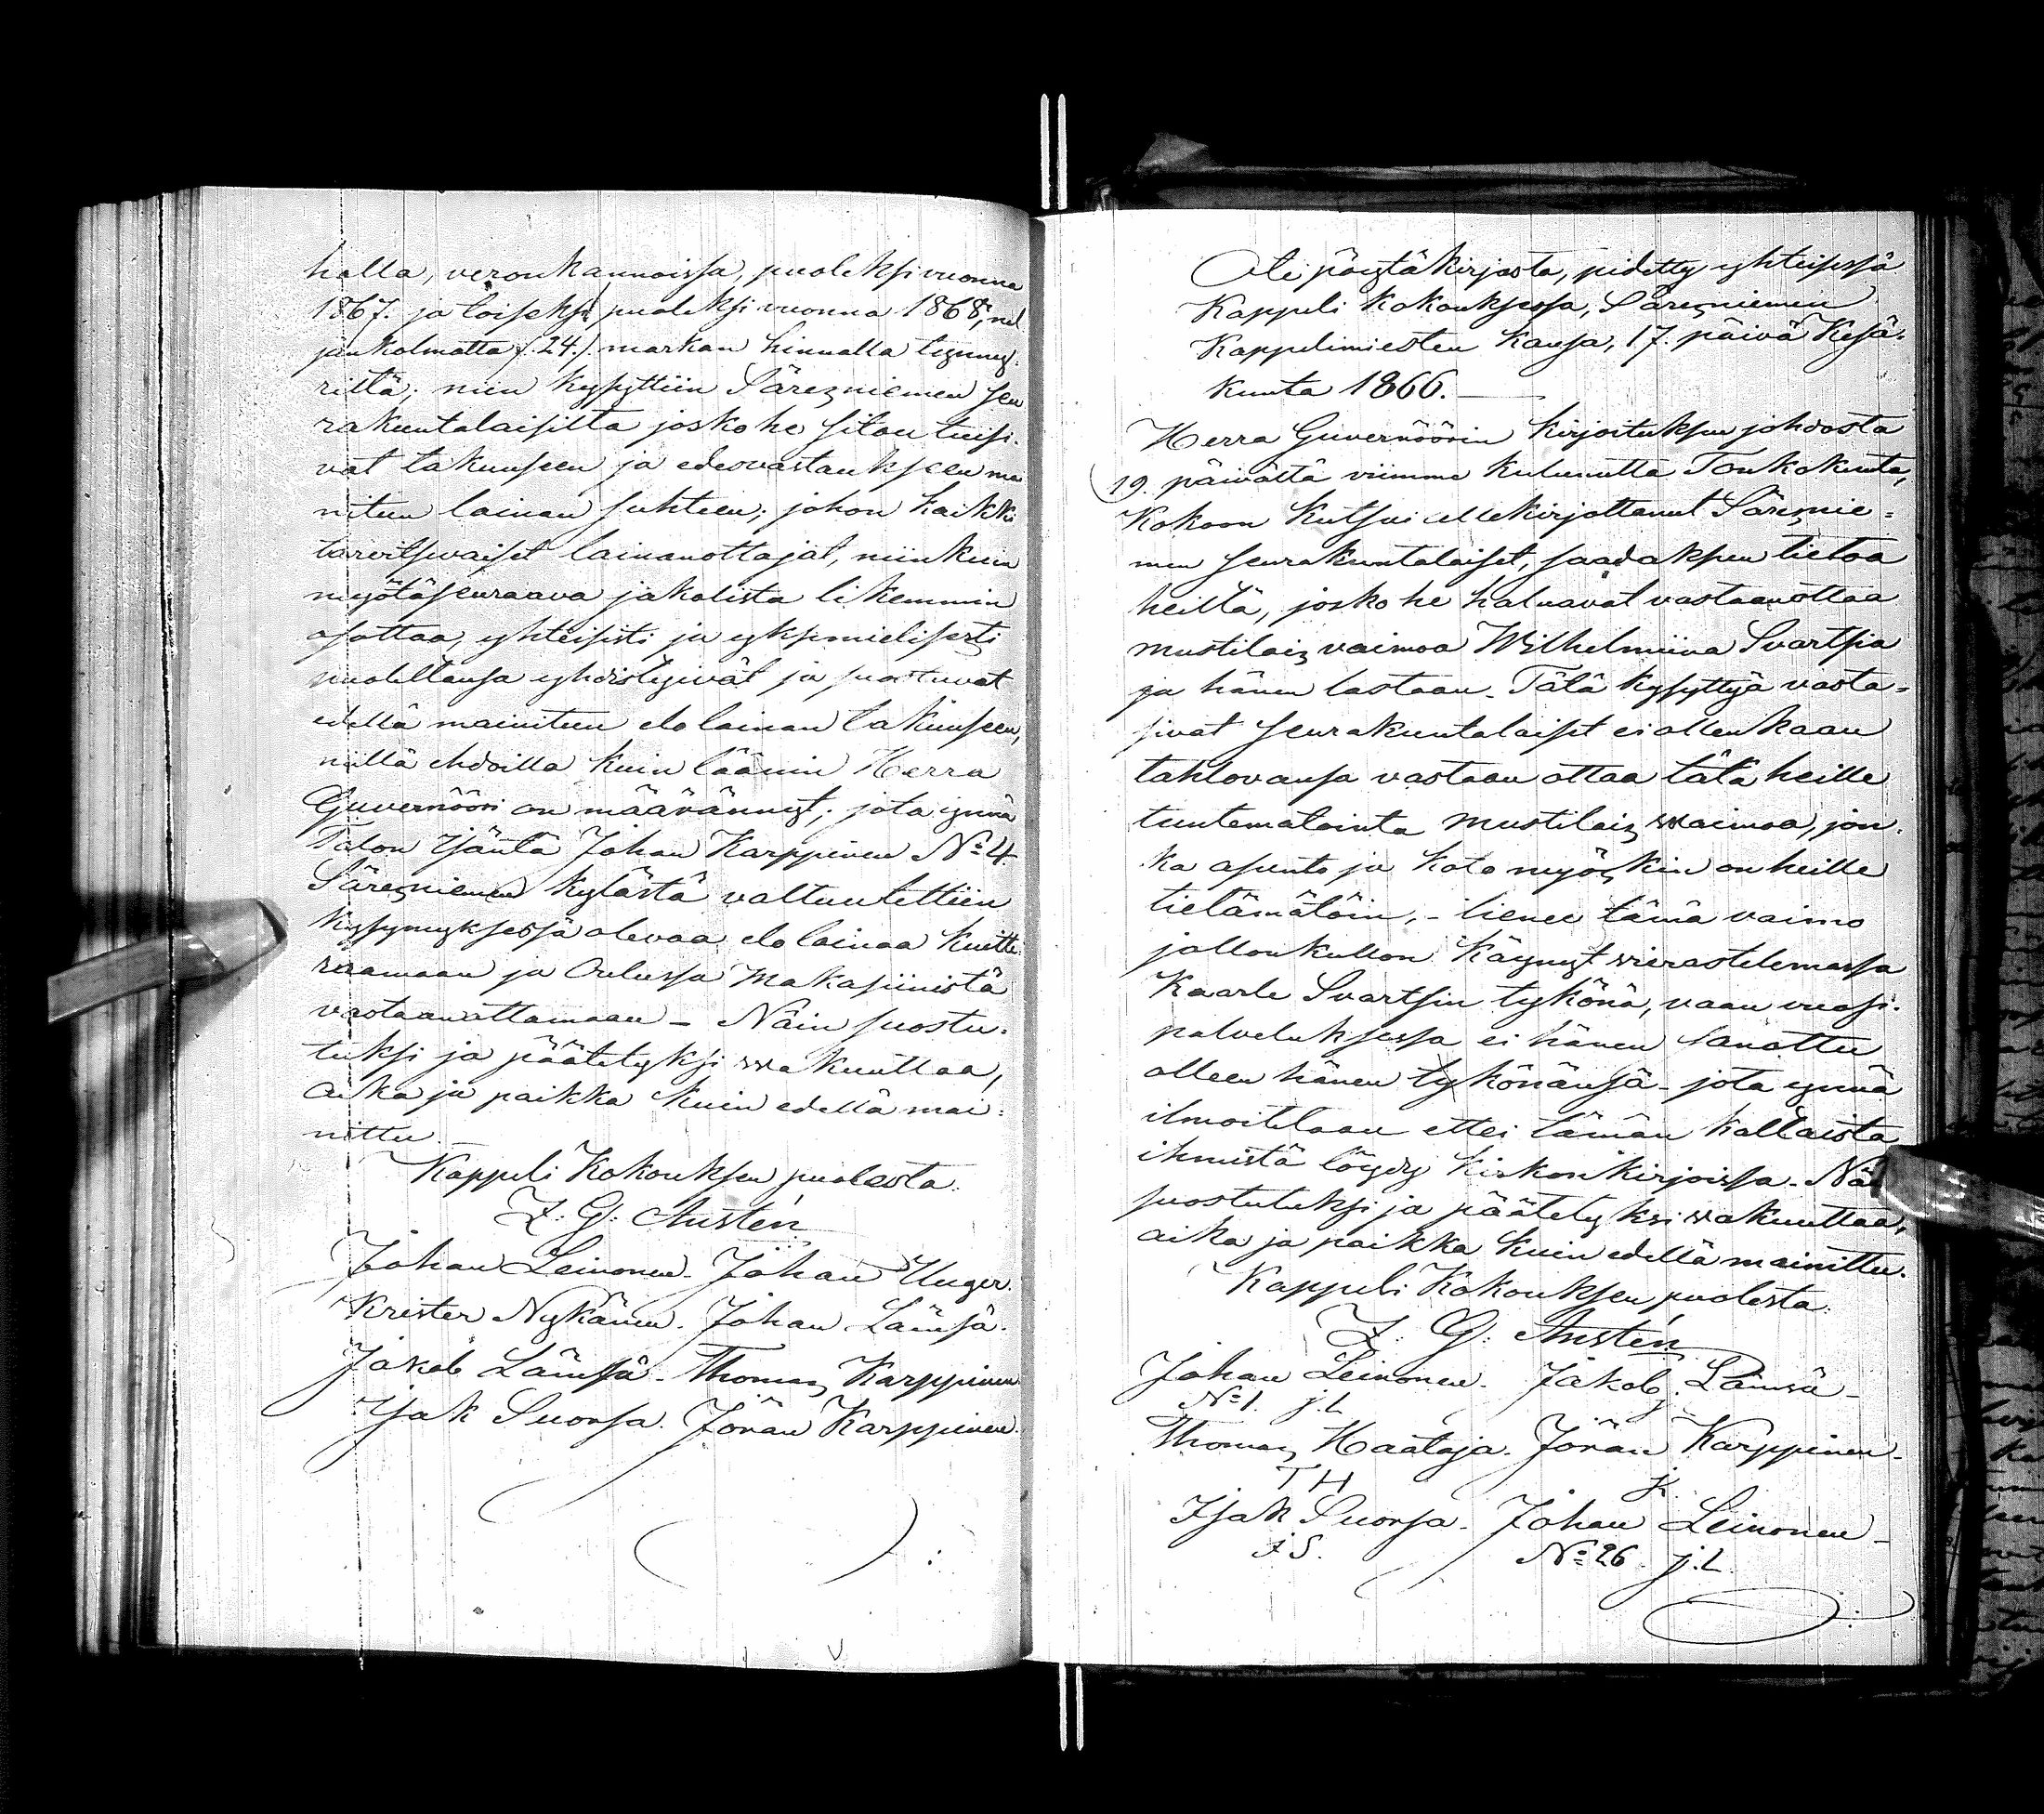 halla, veronkannoissa, puoleksi vuonna
1867. ja toiseksi puoleksi vuonna 1868, nel
jänkolmatta /.24./. markan hinnalla tynnyy-
riltä; niin kysyttiin Säresniemen seu
rakuntalaisilta josko he sitou tuisi-
vat takuuseen ja edesvastaukseen mai
nitun lainan suhteen; johon kaikki
tarvitsevaiset lainanottajat, niinkuin
myötäseuraava jakolista likemmin
osottaa, yhteisesti ja yksimielisesti
puoleltansa yhdistyivät ja suostuvat
edellä mainitun elolainan takuuseen,
niillä ehdoilla kuin läänin Herra
Guvernööri on määrännyt; jota ynnä
Talon Isäntä Johan Karppinen No 4
Säresniemen kylästä valtuutettiin
kysymyksessä olevaa elolainaa kuitti-
seeraamaan ja Oulussa Makasiinista
vastaanottamaan - Näin suostu-
tuksi ja päätetyksi wakuuttaa,
aika ja paikka kuin edellä mai-
nittu.
Kappeli Kokouksen puolesta:
Z: G: Austén
Johan Leinonen. Johan Unger.
Krister Nykänen. Johan Lämsä.
Jakob Lämsä. Thomas Karppinen
Isak Suorsa. Jöran Karppinen.
Ote pöytäkirjasta, pidetty yhteisessä
Kappeli Kokouksessa, Säresniemen
Kappelimiesten kansa, 17. päivä Kesä-
kuuta 1866.
Herra Guvernöörin kirjoituksen johdosta
19. päivältä viimme kulunutta Toukokuuta,
Kokoon kutsui allekirjottanut Säresnie-
men seurakuntalaiset, saadaksen tietoa
heiltä, josko he haluavat vastaanottaa
mustilais vaimoa Wilhelmiina Svartsia
ja hänen lastaan. Tätä kysyttyä vasta-
sivat seurakuntalaiset ei ollenkaan
tahtovansa vastaan ottaa tätä heille
tuntematointa Mustilais waimoa, jon-
ka asunto ja koto myöskin on heille
tietämätöin, - lienee tämä vaimo
jolloinkulloin käynyt wierastelemassa
Kaarle Svartsin tykönä, vaan vuosi-
palveluksessa ei hänen sanottu
olleen hänen tykönänsä - jota ynnä
ilmoitetaan ettei tämän kaltaista
ihmistä löydy kirkonkirjoissa. Näi
suostutuksi ja päätetyksi wakuuttaa,
aika ja paikka kuin edellä mainittu.
Kappeli Kokouksen puolesta:
Z: G: Austén
Johan Leinonen. Jakob Lämsä -
No 1. j.L
Thomas Haataja. Jöran Karppinen -
T H
Isak Suorsa. Johan Leinonen -
I S. No 26. j.L.